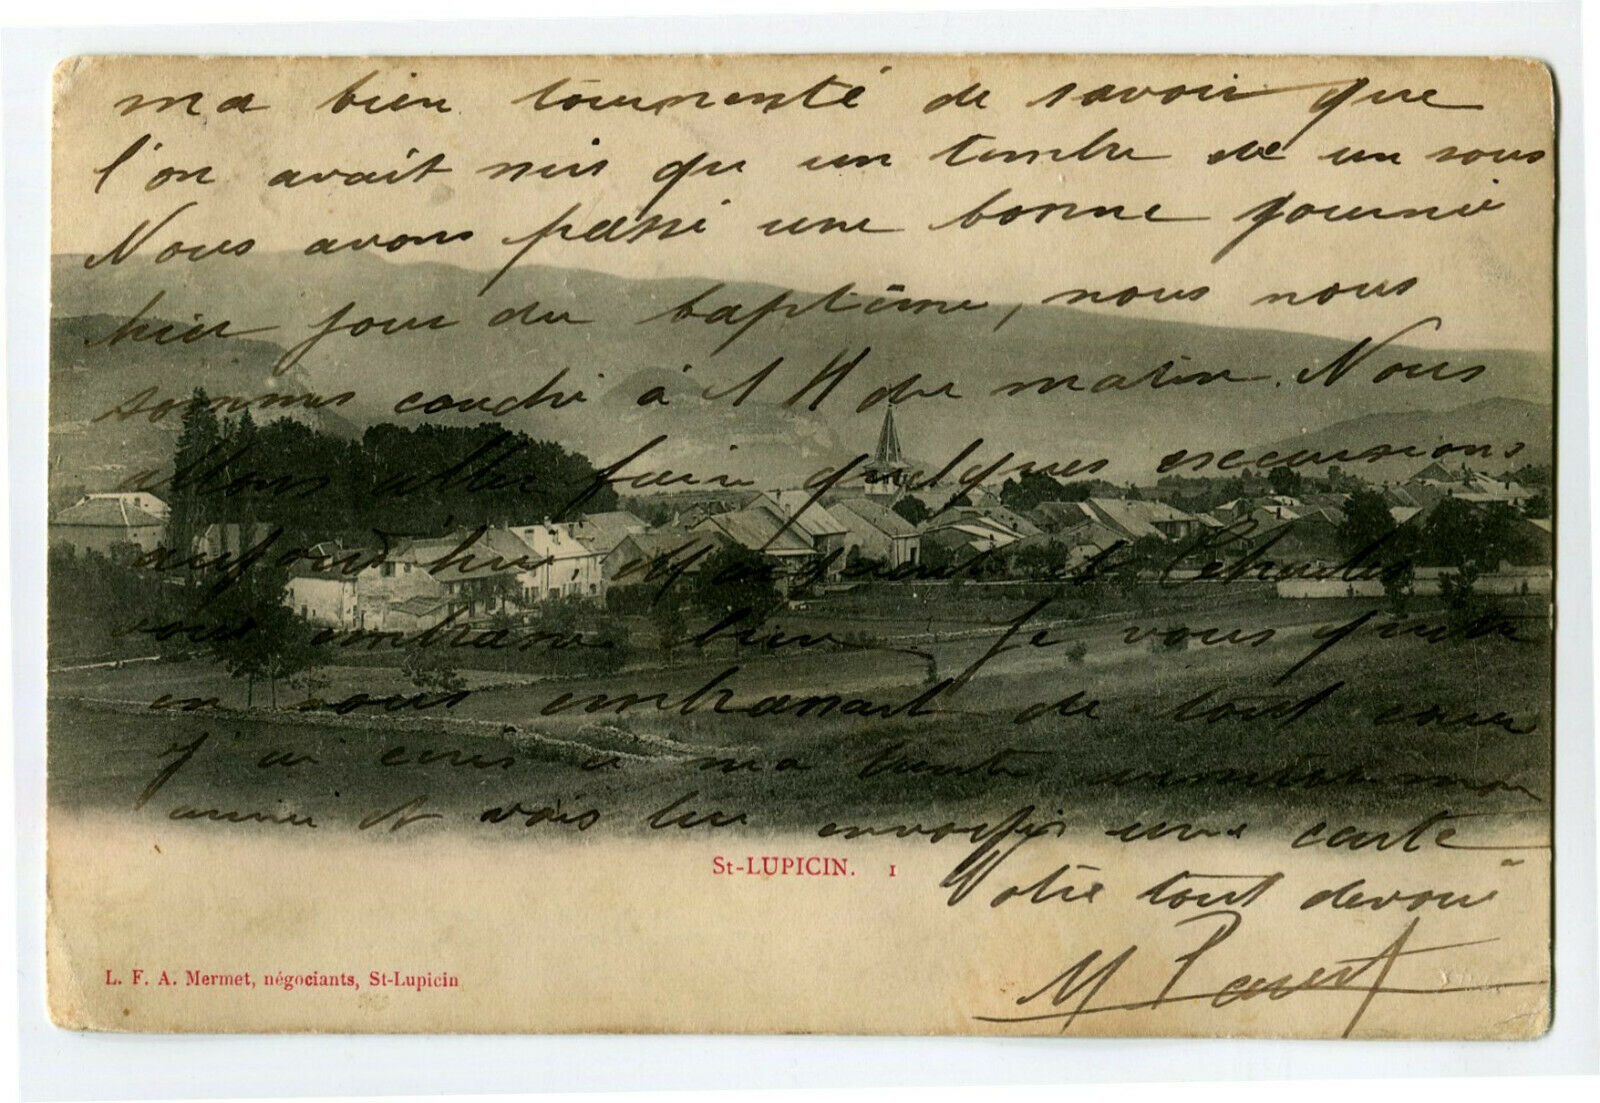 ma bien tourmenté de savoir que
l'on avait mis qu un timbre de un sous
Nous avons passé une bonne journée
hier jour du baptême, nous nous
sommes couché à 1 H du matin. Nous
allons aller faire quelques excursions
aujourd'hui. et Charles
vous embrasse bien. Je vous quitte
en vous embrassant de tout cœur
J'ai écris à ma tante
et vais lui envoyer une carte
St-LUPICIN. 1
Votre tout dévoué
M
L. F. A. Mermet, négociants, St-Lupicin